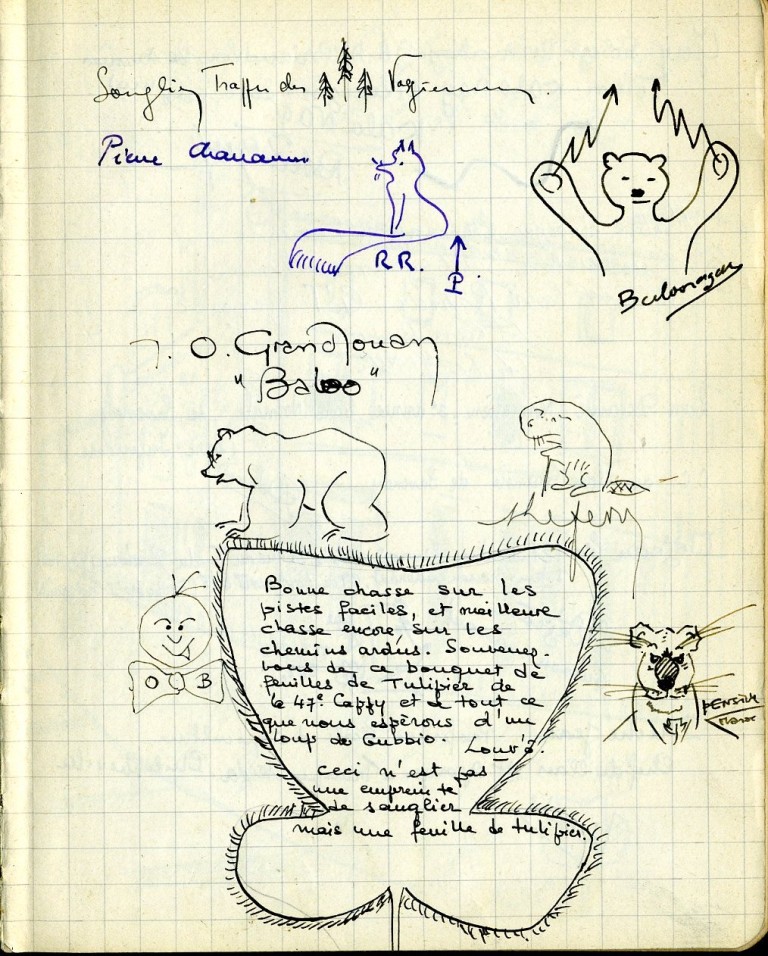 Pierre
R.R.
P
O. Grandjouan
"Baloo"
Bonne chasse sur les
pistes faciles, et meilleure
chasse encore, sur les
chemins ardus. Souvenez-
vous de ce bouquet de
feuilles de Tulipier de
la 47e Cappy et de tout ce
que nous espérons d'un
Loup de Gubbio. Louv'a.
O B
ceci n'est pas
une empreinte
de sanglier
mais une feuille de tulipier.